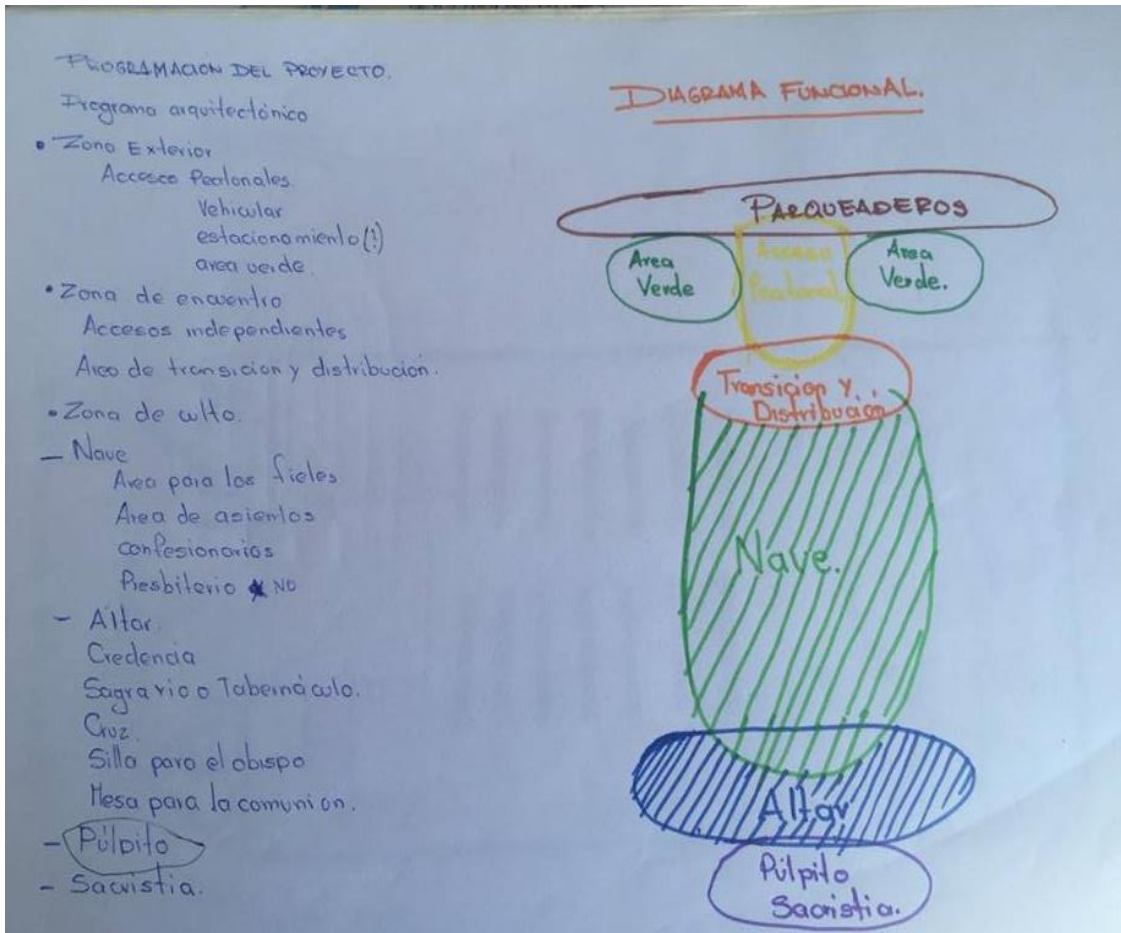 PROGRAMACION DEL PROYECTO.
Programa arquitectónico
• Zona Exterior
Accesos Peatonales.
Vehicular
estacionamiento(!)
area verde.
• Zona de encuentro
Accesos independientes
Area de transicion y distribución.
• Zona de culto.
— Nave
Area para los fieles
Area de asientos
confesionarios
Presbiterio NO
- Altar.
Credencia
Sagrario o Tabernáculo.
Cruz.
Silla para el obispo
Mesa para la comunion.
- Púlpito
- Sacristia.
DIAGRAMA FUNCIONAL.
PARQUEADEROS
Area
Verde
Acceso
Peatonal.
Area
Verde.
Transicion y
Distribucion
Nave.
Altar
Púlpito
Sacristia.